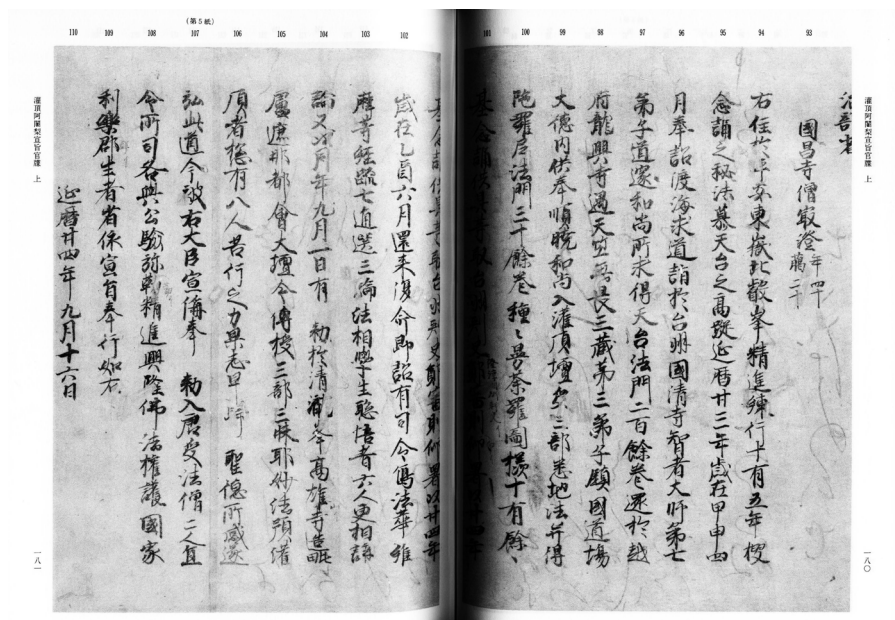 93 94 95 96 97 98 99 100 101
灌頂阿闍梨宣旨官牒 上
國昌寺僧最澄 年四十 﨟二十
右住於平安東嶽比叡峯精進練行十有五年搜
念誦之秘法慕天台之高蹤延曆廿三年歲在甲申四
月奉詔渡海求道詣於台州國清寺智者大師第七
弟子道邃和尚所求得天台法門二百餘卷還於越
府龍興寺遇天竺無畏三藏第三弟子鎮國道場
大德内供奉順曉和尚入灌頂壇受三部悉地法并得
陁羅尼法門三十餘卷種〻曼荼羅圖樣十有餘〻
基念誦供具等
一八〇
(第5紙)
102 103 104 105 106 107 108 109 110
署以廿四年
歲在乙酉六月還来復命即詔有司令寫法華維
摩等經疏七通選三論法相學生聡悟者六人更相講
論又同年九月一日有 勅於清瀧峯高雄寺造毗
盧遮那都會大壇令傳授三部三昧耶妙法預灌
頂者惣有八人 行之力果志早 聖德所感遂
弘此道今被右大臣宣偁奉 勅入唐受法僧二人宜
令所司各與公驗弥勤精進興隆佛法擁護國家
利樂群生者省依宣旨奉行如右
延曆廿四年九月十六日
灌頂阿闍梨宣旨官牒 上
一八一